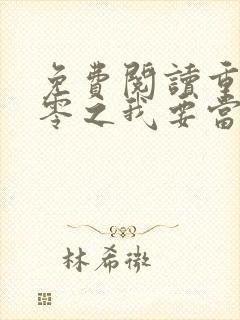 免費閱讀重
零之我要當
林希微